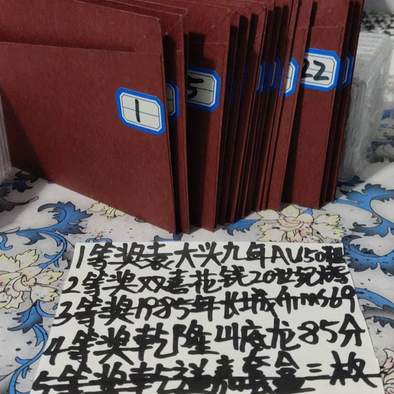 1
5
22
1等奖袁大头九年AU50
2等奖双毫 20世纪
3等奖1985年长城币MS69
4等奖乾隆 龙85分
5等奖乾 嘉套盒三枚